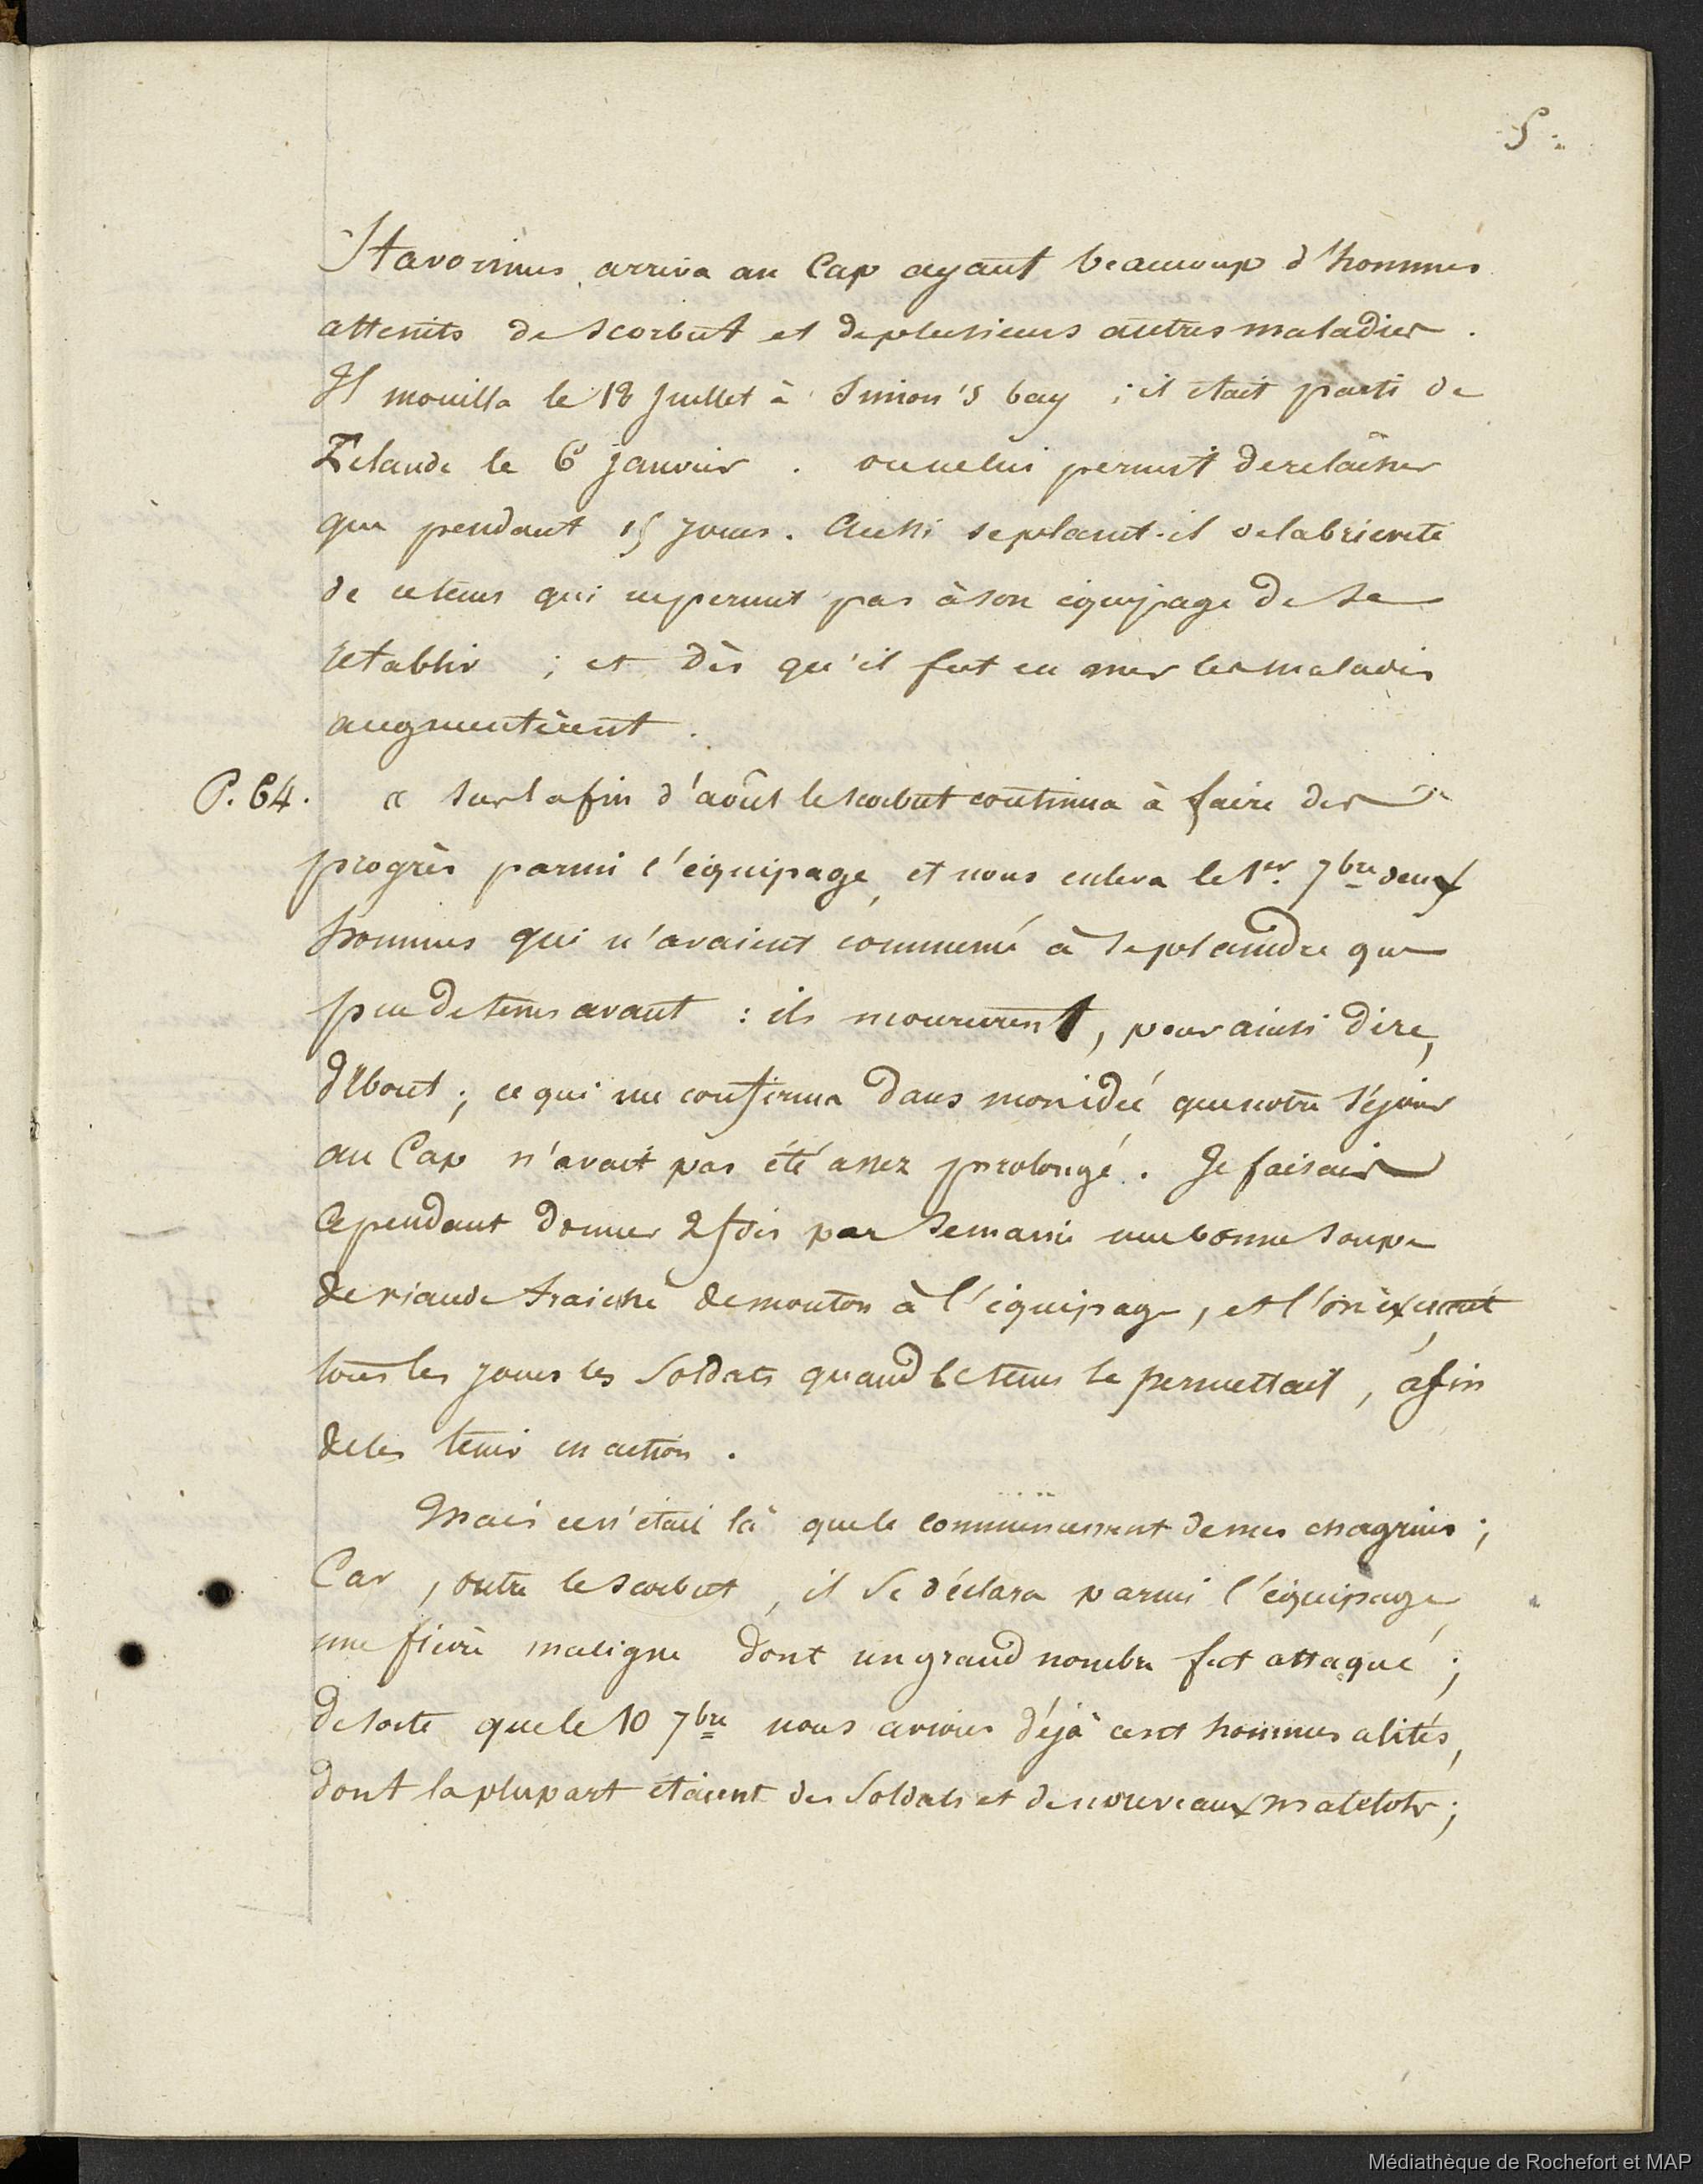 5.
Stavorinus arriva au Cap ayant beaucoup d'hommes
atteints de scorbut et de plusieurs autres maladies.
Il mouilla le 18 Juillet à Simon's bay ; il était parti de
Zelande le 6 janvier. on ne lui permit de relâcher
que pendant 15 jours. Aussi se plaint-il de la brièveté
de ce tems qui ne permit pas à son équipage de se
rétablir ; et dès qu'il fut en mer les maladies
augmentèrent.
P. 64. « Sur la fin d'août le scorbut continua à faire des
progrès parmi l'équipage, et nous enleva le 1er. 7bre deux
hommes qui n'avaient commencé à se plaindre que
peu de tems avant : ils moururent, pour ainsi dire,
debout ; ce qui me confirma dans mon idée que notre séjour
au Cap n'avait pas été assez prolongé. Je faisais
Cependant donner 2 fois par semaine une bonne soupe
de viande fraiche de mouton à l'équipage, et l'on exerçait
tous les jours les soldats quand le tems le permettait, afin
de les tenir en action.
Mais ce n'était là que le commencement de mes chagrins ;
Car, outre le scorbut, il se déclara parmi l'équipage
une fievre maligne dont un grand nombre fut attaqué ;
de sorte que le 10 7bre nous avions déjà cent hommes alités,
dont la plupart étaient des soldats et de nouveaux matelots ;
Médiathèque de Rochefort et MAP